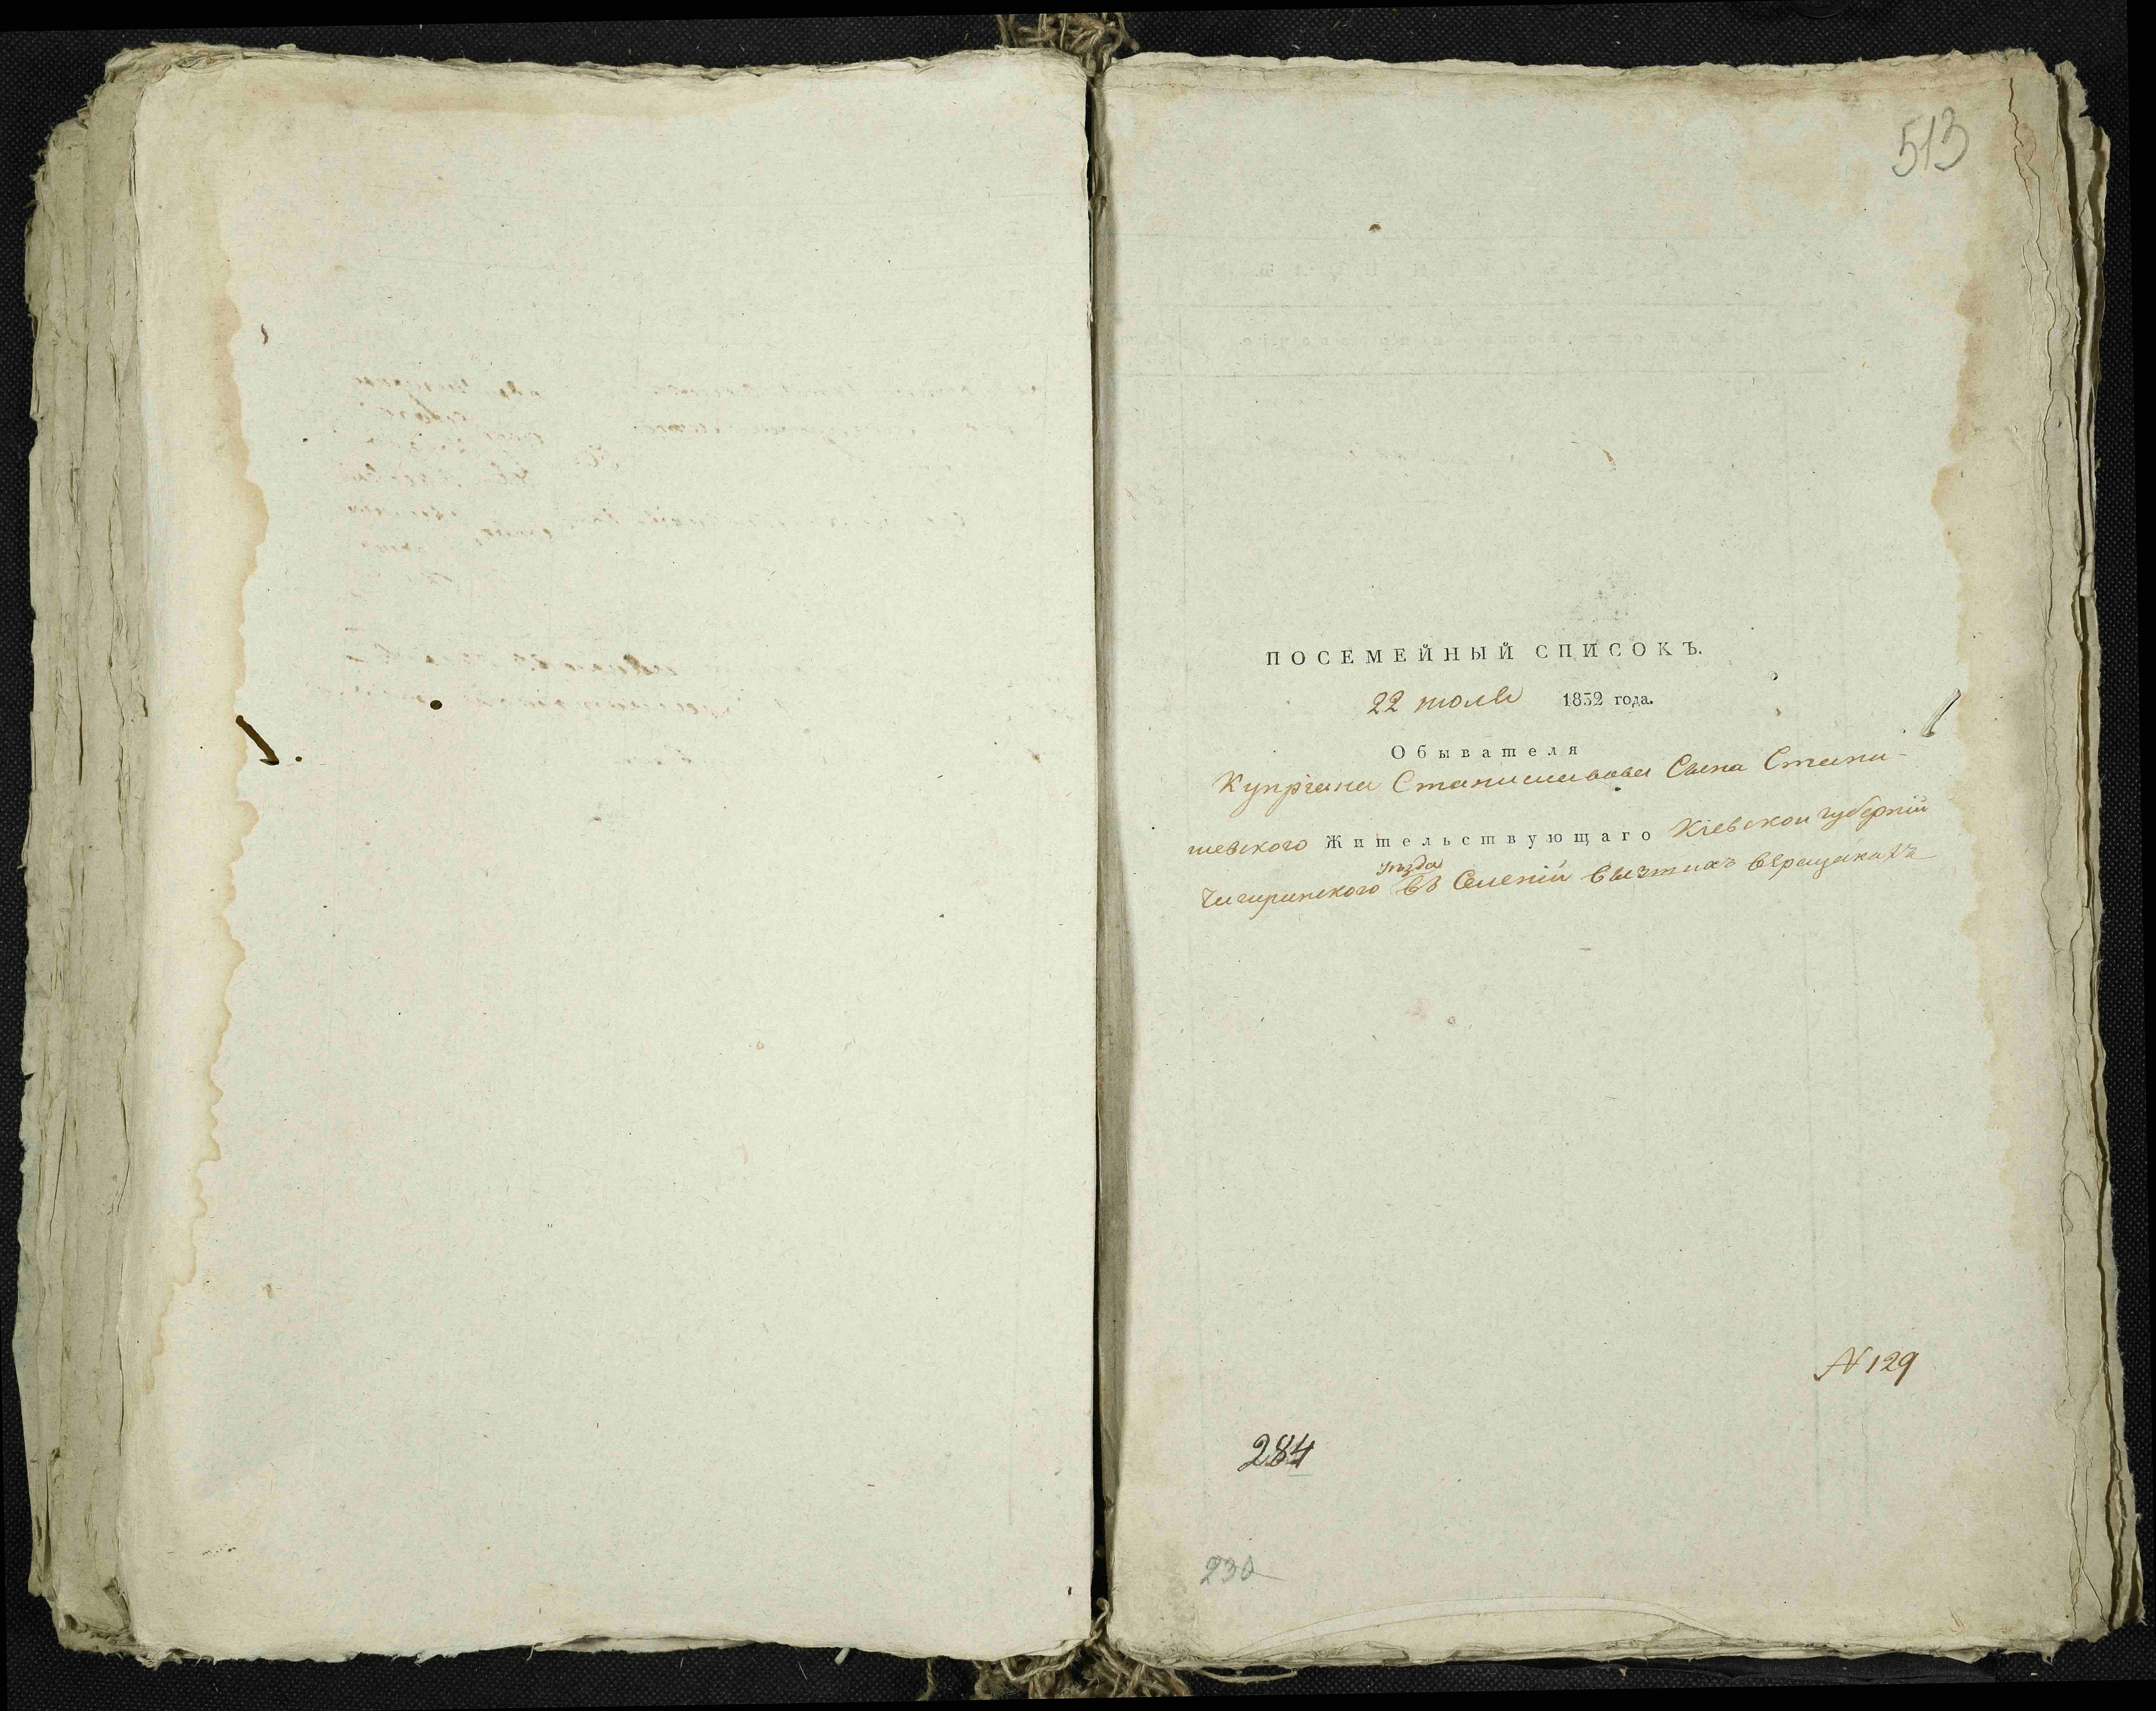 513
ПОСЕМЕЙНЫЙ СПИСОКЪ.
22 июля 1832 года.
Обывателя
Купріяна Станиславова Сына Стани-
шевского Жительствующаго Кіевской губерніи
уѣзда
Чигиринского въ Селеніи Вращикахъ
N 129
284
230